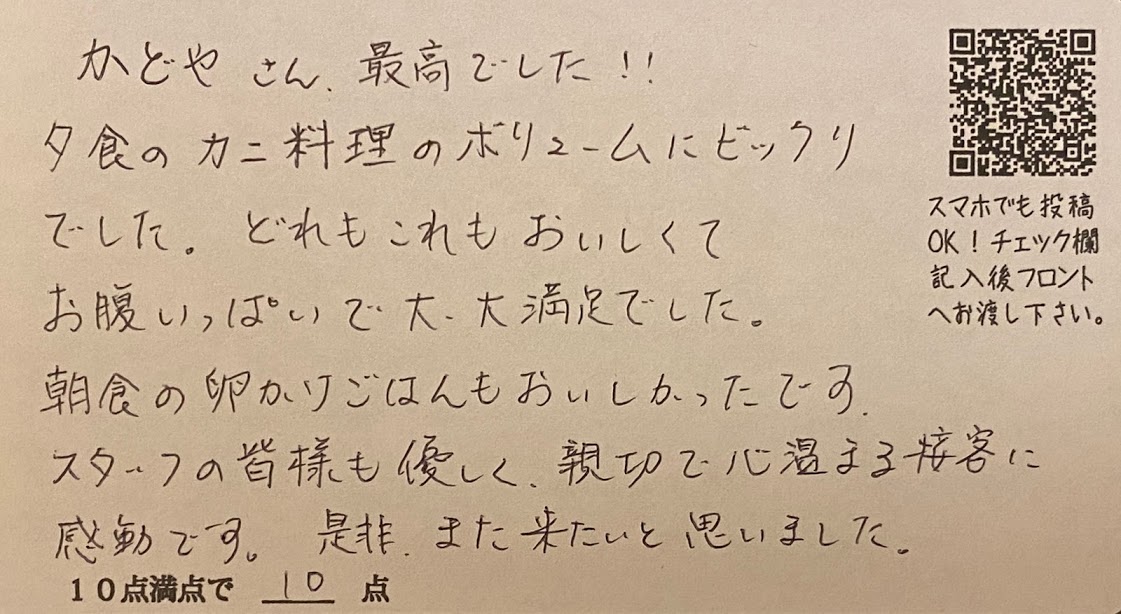 かどやさん、最高でした!!
夕食のカニ料理のボリュームにビックリ
でした。どれもこれもおいしくて
お腹いっぱいで大、大満足でした。
朝食の卵かけごはんもおいしかったです。
スタッフの皆様も優しく、親切で心温まる接客に
感動です。是非、また来たいと思いました。
10点満点で 10 点
スマホでも投稿
OK!チェック欄
記入後フロント
へお渡し下さい。